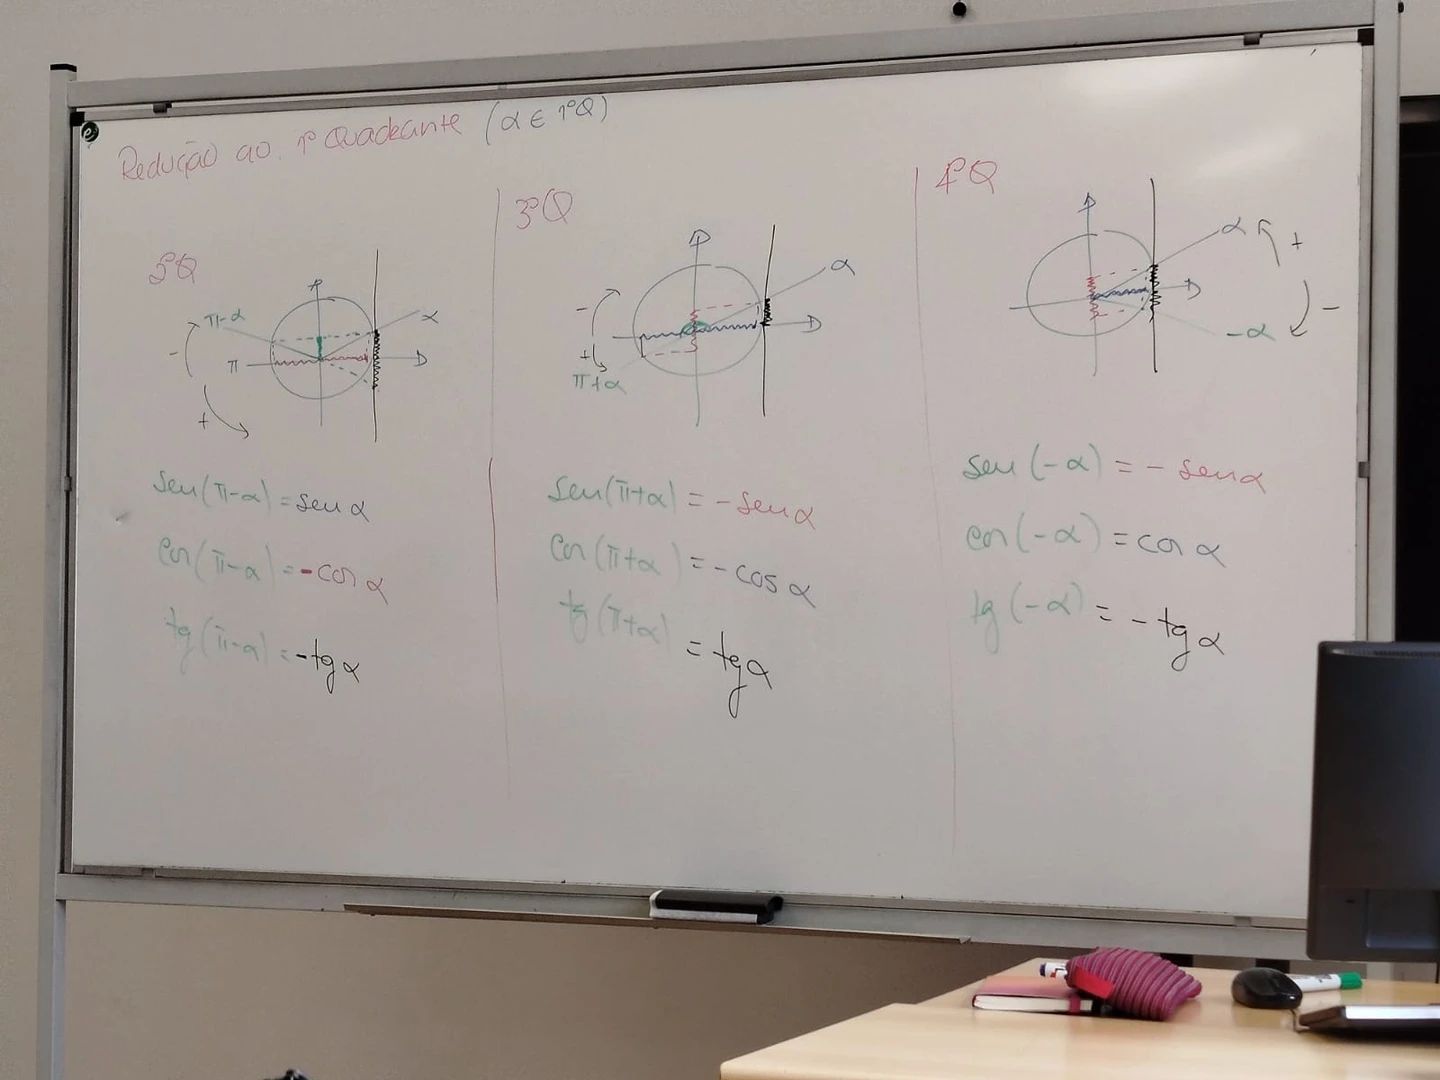 Redução ao 1º Quadrante (α ∈ 1ºQ)
2ºQ
π-α
α
π
-
+
sen(π-α) = sen α
cos(π-α) = -cos α
tg(π-α) = -tg α
3ºQ
α
-
+
π+α
sen(π+α) = - sen α
cos(π+α) = - cos α
tg(π+α) = tg α
4ºQ
α
+
-
-α
sen(-α) = - sen α
cos(-α) = cos α
tg(-α) = - tg α